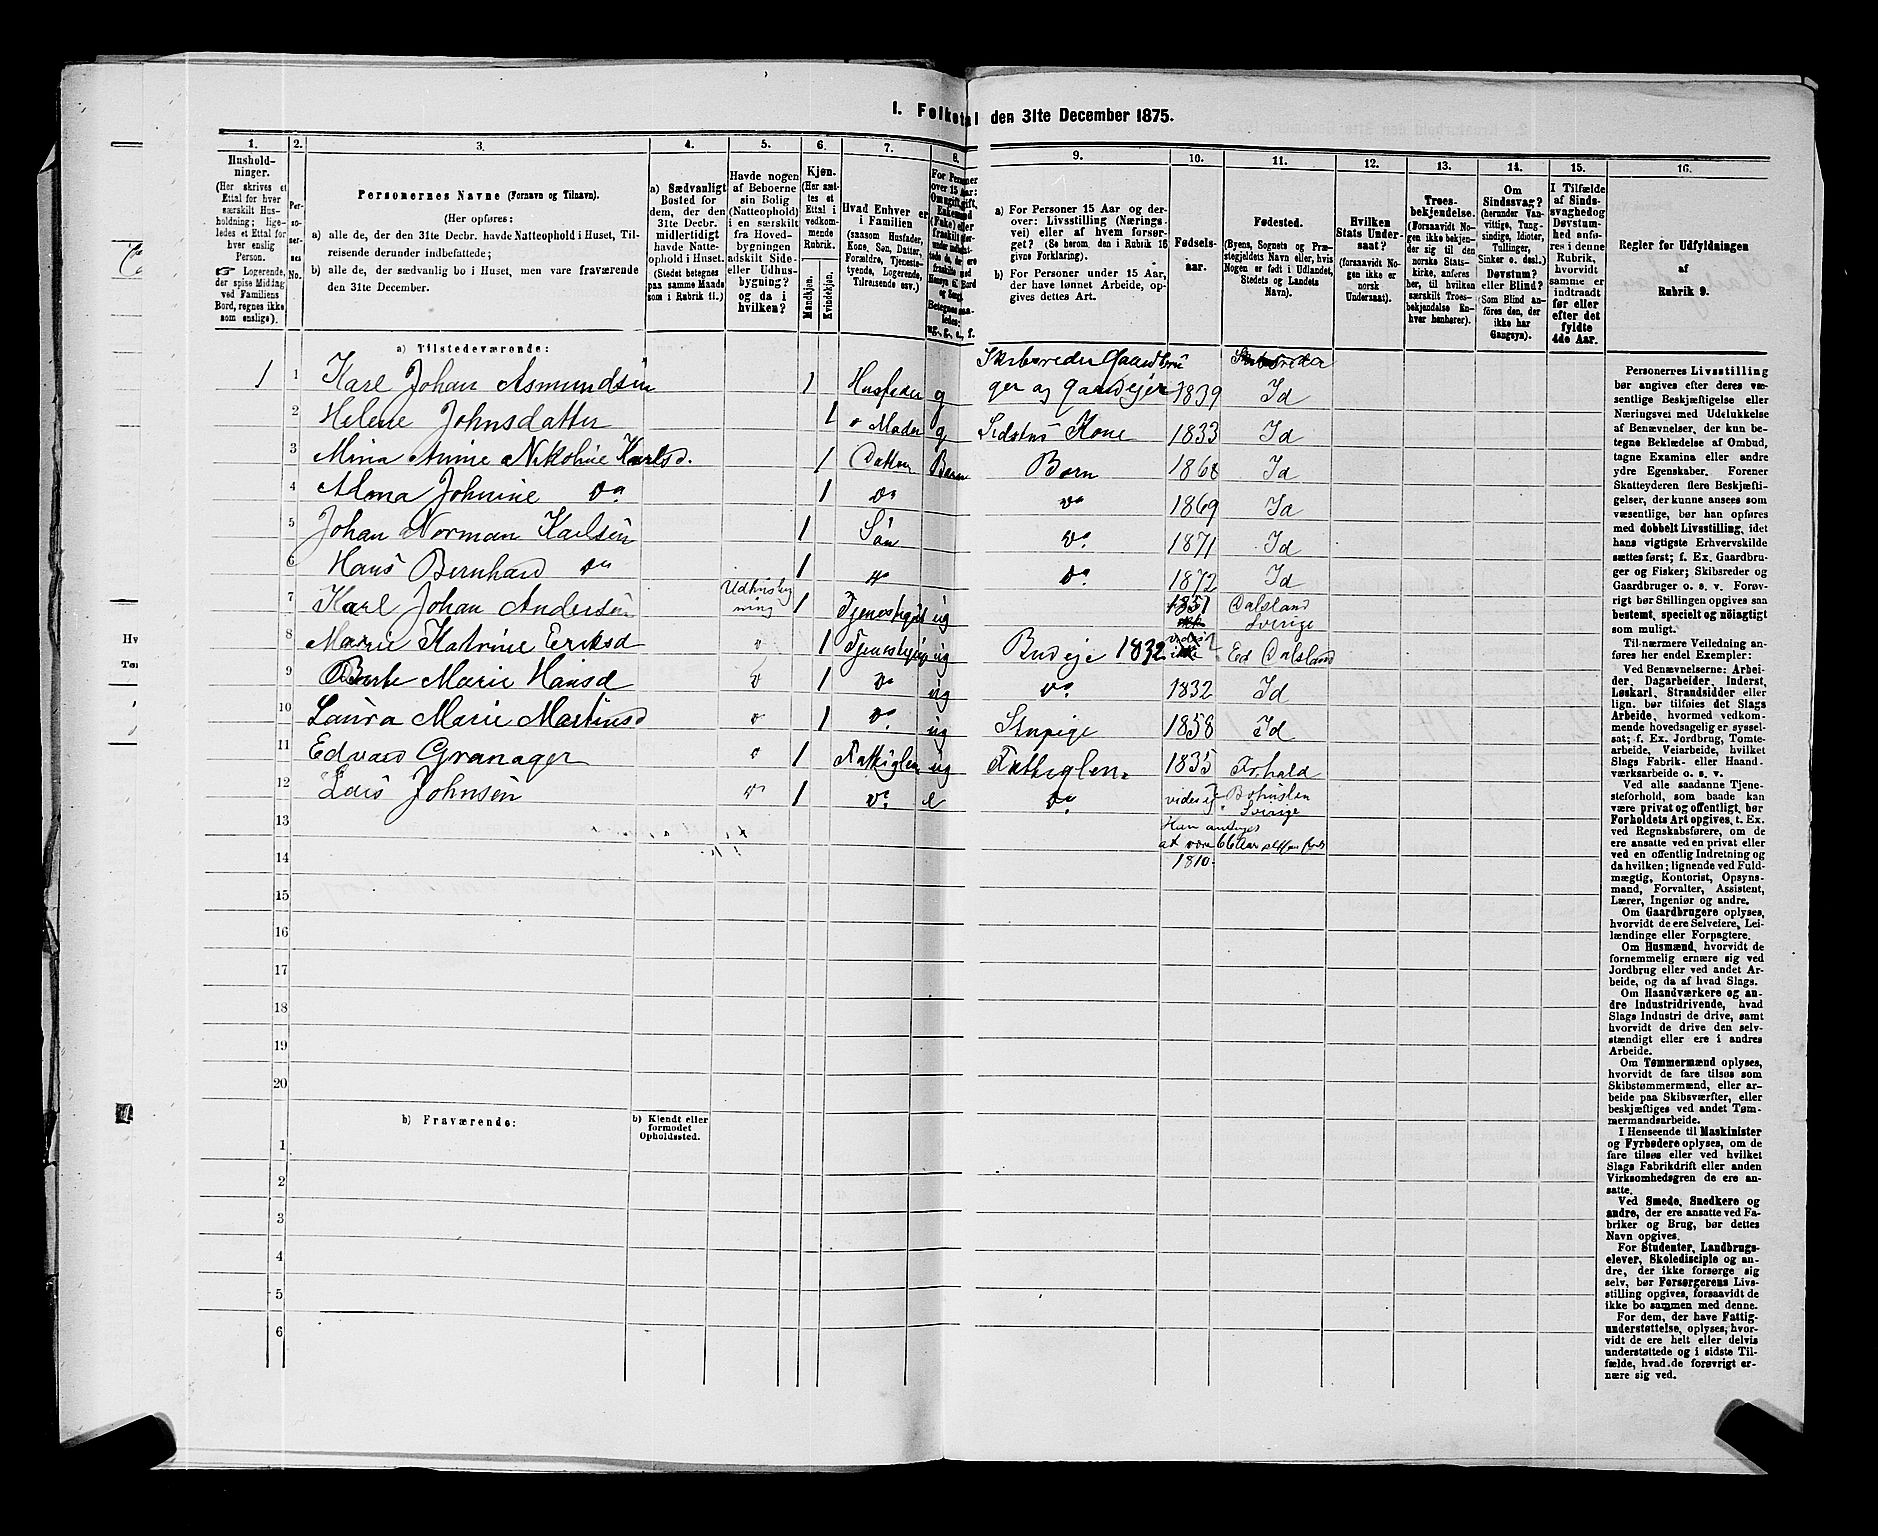 1. Folketal den 31te December 1875.
1. 2. 3. 4. 5. 6. 7. 8. 9. 10. 11. 12. 13. 14. 15. 16.
Hushold-
ninger.
(Her skrives et
Ettal for hver
særskilt Hus-
holdning; lige-
ledes et Ettal for
hver enslig
Person.
☞ Logerende,
der spise Middag
ved Familiens
Bord, regnes ikke
som enslige).
Per-
so-
ner-
nes
No.
Personernes Navne (Fornavn og Tilnavn).
(Her opføres:
a) alle de, der den 31te Decbr. havde Natteophold i Huset, Til-
reisende derunder indbefattede;
b) alle de, der sædvanlig bo i Huset, men vare fraværende
den 31te December.
a) Sædvanligt
Bosted for
dem, der den
31te Decbr.
midlertidigt
havde Natte-
ophold i Huset.
(Stedet betegnes
paa samme Maade
som i Rubrik 11.)
Havde nogen
af Beboerne
sin Bolig
(Natteophold)
i en særskilt
fra Hoved-
bygningen
adskilt Side-
eller Udhus-
bygning?
og da i
hvilken?
Kjøn.
(Her sæt-
tes et
Ettal i
vedkom-
mende
Rubrik.
Mandkjøn.
Kvindekjøn.
Hvad Enhver er
i Familien
(saasom Husfader,
Kone, Søn, Datter,
Forældre, Tjeneste-
tyende, Logerende,
Tilreisende osv.)
For Personer
over 15 Aar:
a) For Personer 15 Aar og der-
over: Livsstilling (Nærings-
vei) eller af hvem forsør-
get? (Se herom, den i Rubrik 16
givne Forklaring).
b) For Personer under 15 Aar,
der have lønnet Arbeide, op-
gives dettes Art.
Fødsels-
aar.
Fødested.
(Byens, Sognets og Præ-
stegjeldets Navn eller, hvis
Nogen er født i Udlandet,
Stedets og Landets
Navn).
Hvilken
Stats Under-
saat?
(forsaavidt No-
gen ikke er
norsk
Undersaat).
Troes-
bekjendelse.
(Forsaavidt No-
gen ikke bekjen-
der sig til den
norske Stats-
kirke, anføres
her, til hvilken
særskilt Troes-
bekjendelse En-
hver henhører).
Om
Sindssvag?
(herunder Van-
vittige, Tung-
sindige, Idioter,
Tullinger,
Sinker o. desl.)
Døvstum?
eller Blind?
(Som Blind an-
føres den, der
ikke har
Gangsyn).
I Tilfælde
af Sinds-
svaghedog
Døvstum-
hed anfø-
res i denne
Rubrik,
hvorvidt
samme er
indtraadt
før eller
efter det
fyldte
4de Aar.
Regler for Udfyldningen
af
Rubrik 9.
a) Tilstedeværende:
Skibsreder Gaardbru
1 1 Karl Johan Asmundsen 1 Husfader g ger og Gaardejer 1839 Id
2 Helene Johnsdatter 1 Moder g Sidstns Kone 1833 Id
3 Mina Anne Nikoline Karlsd. 1 Datter Barn Barn 1868 Id
4 Alma Johnine do 1 do do 1869 Id
5 Johan Norman Karlsen 1 Søn do 1871 Id
6 Hans Bernhard do 1 do do 1872 Id
7 Karl Johan Andersen Udhusbyg
ning 1 ug 1851 Dalsland
Sverige
8 Marie Katrine Eriksd 1 ug Budeje 1832 Ed Dalsland
9 Berte Marie Hansd 1 do ug do 1832 Id
10 Laura Marie Martinsd 1 do ug Stupige 1858 Id
11 Edvard Granager 1 Fattiglem ug Fattiglem 1835 Frhald
12 Lars Johnsen 1 do e do vides ej Bohuslen
Sverige
13 Han antages
at være 66 Aar
14 1810.
15
16
17
18
19
20
b) Fraværende:
b) Kjendt eller
formodet
Opholdssted.
1
2
3
4
5
6
Personernes Livsstilling
bør angives efter deres væ-
sentlige Beskjæftigelse eller
Næringsvei med Udelukkelse
af Benævnelser, der kun be-
tegne Beklædelse af Ombud,
tagne Examina eller andre
ydre Egenskaber. Forener
Skatteyderen flere Beskjæfti-
gelser, der kunne ansees som
væsentlige, bør han opføres
med dobbelt Livsstilling, idet
hans vigtigste Erhvervskilde
sættes først; f. Ex. Gaardbru-
ger og Fisker; Skibsreder og
Gaardbruger o. s. v. Forøv-
rigt bør Stillingen opgives saa
bestemt, specielt og nöiagtigt
som muligt.
Til nærmere Veiledning an-
føres her endel Exempler:
Ved Benævnelserne: Arbei-
der, Dagarbeider, Inderst,
Løskarl, Strandsidder eller
lign. bør tilføies det Slags
Arbeide, hvormed vedkom-
mende hovedsagelig er syssel-
sat; f. Ex. Jordbrug, Tomte-
arbeide, Veiarbeide, hvilket
Slags Fabrik- eller Haand-
værksarbeide o. s. v.
Ved alle saadanne Tjene-
steforhold, som baade kan
være privat og offentligt, bør
Forholdets Art opgives, t. Ex.
ved Regnskabsførere, om de
ere ansatte ved en privat eller
ved en offentlig Indretning og
da hvilken; lignende ved Fuld-
mægtig, Kontorist, Opsyns-
mand, Forvalter, Assistent,
Lærer, Ingeniør og andre.
Om Gaardbrugere oplyses,
hvorvidt de ere Selveiere, Lei-
lændinge eller Forpagtere.
Om Husmænd, hvorvidt de
fornemmelig ernære sig ved
Jordbrug eller ved andet Ar-
beide, og da af hvad Slags.
Om Haandværkere og an-
dre Industridrivende, hvad
Slags Industri de drive, samt
hvorvidt de drive den selv-
stændigt eller ere i andres
Arbeide.
Om Tømmermænd oplyses,
hvorvidt de fare tilsøs som
Skibstømmermænd, eller ar-
beide paa Skibsværfter, eller
beskjæftiges ved andet Tøm-
mermandsarbeide.
I Henseende til Maskinister
og Fyrbødere oplyses, om de
fare tilsøs eller ved hvilket
Slags Fabrikdrift eller anden
Virksomhedsgren de ere an-
satte.
Ved Smede, Snedkere og
andre, der ere ansatte ved Fa-
briker og Brug, bør dettes
Navn opgives.
For Studenter, Landbrugs-
elever, Skoledisciple og an-
dre, der ikke forsørge sig
selv, bør Forsørgerens Livs-
stilling opgives, forsaavidt de
ikke bo sammen med denne.
For dem, der have Fattig-
understøttelse, oplyses, hvor-
vidt de ere helt eller delvis
understøttede og i sidste Til-
fælde, hvad de forøvrigt er-
nære sig ved.